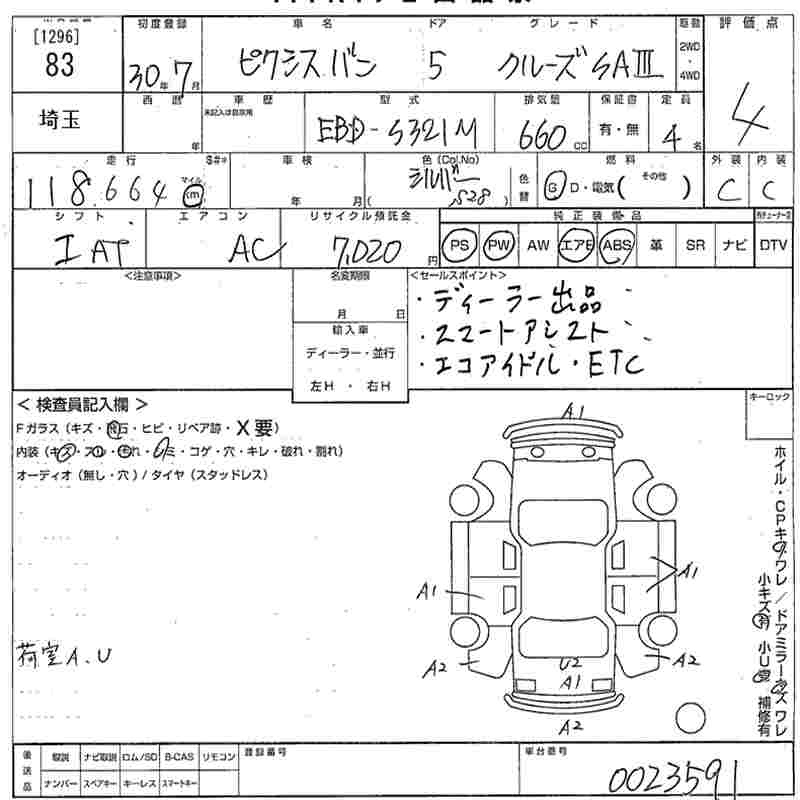 [1296]
83
初度登録
30年7月
車名
ピクシス バン
ドア
5
グレード
クルーズ SAⅢ
駆動
2WD
・
4WD
評価点
4
埼玉
西暦
年
車歴
未記入は自家用
型式
EBD-S321M
排気量
660 CC
保証書
有・無
定員
4名
走行
118,664
マイル
km
S#*
車検
年 月
色(Col.No)
シルバー
( S28 )
色替
燃料
G D・電気( その他 )
外装
C
内装
C
シフト
I AT
エアコン
AC
リサイクル預託金
7,020円
純正装備品
PS PW AW エアB ABS 革 SR ナビ DTV
<注意事項>
名変期限
月 日
輸入車
ディーラー・並行
左H ・ 右H
<セールスポイント>
・ディーラー出品
・スマートアシスト
・エコアイドル・ETC
< 検査員記入欄 >
Fガラス (キズ・飛石・ヒビ・リペア跡・X要)
内装 (キズ・スレ・汚れ・シミ・コゲ・穴・キレ・破れ・割れ)
オーディオ (無し・穴) / タイヤ (スタッドレス)
荷室A.U
キーロック
A1
A1
A1
A2
A2
U2
A1
A2
ホイル・CPキズワレ/ドアミラーキズワレ
小キズ有 小U有 補修有
後送品
取説 ナビ取説 ロム/SD B-CAS リモコン
ナンバー スペアキー キーレス スマートキー
登録番号
車台番号
0023591